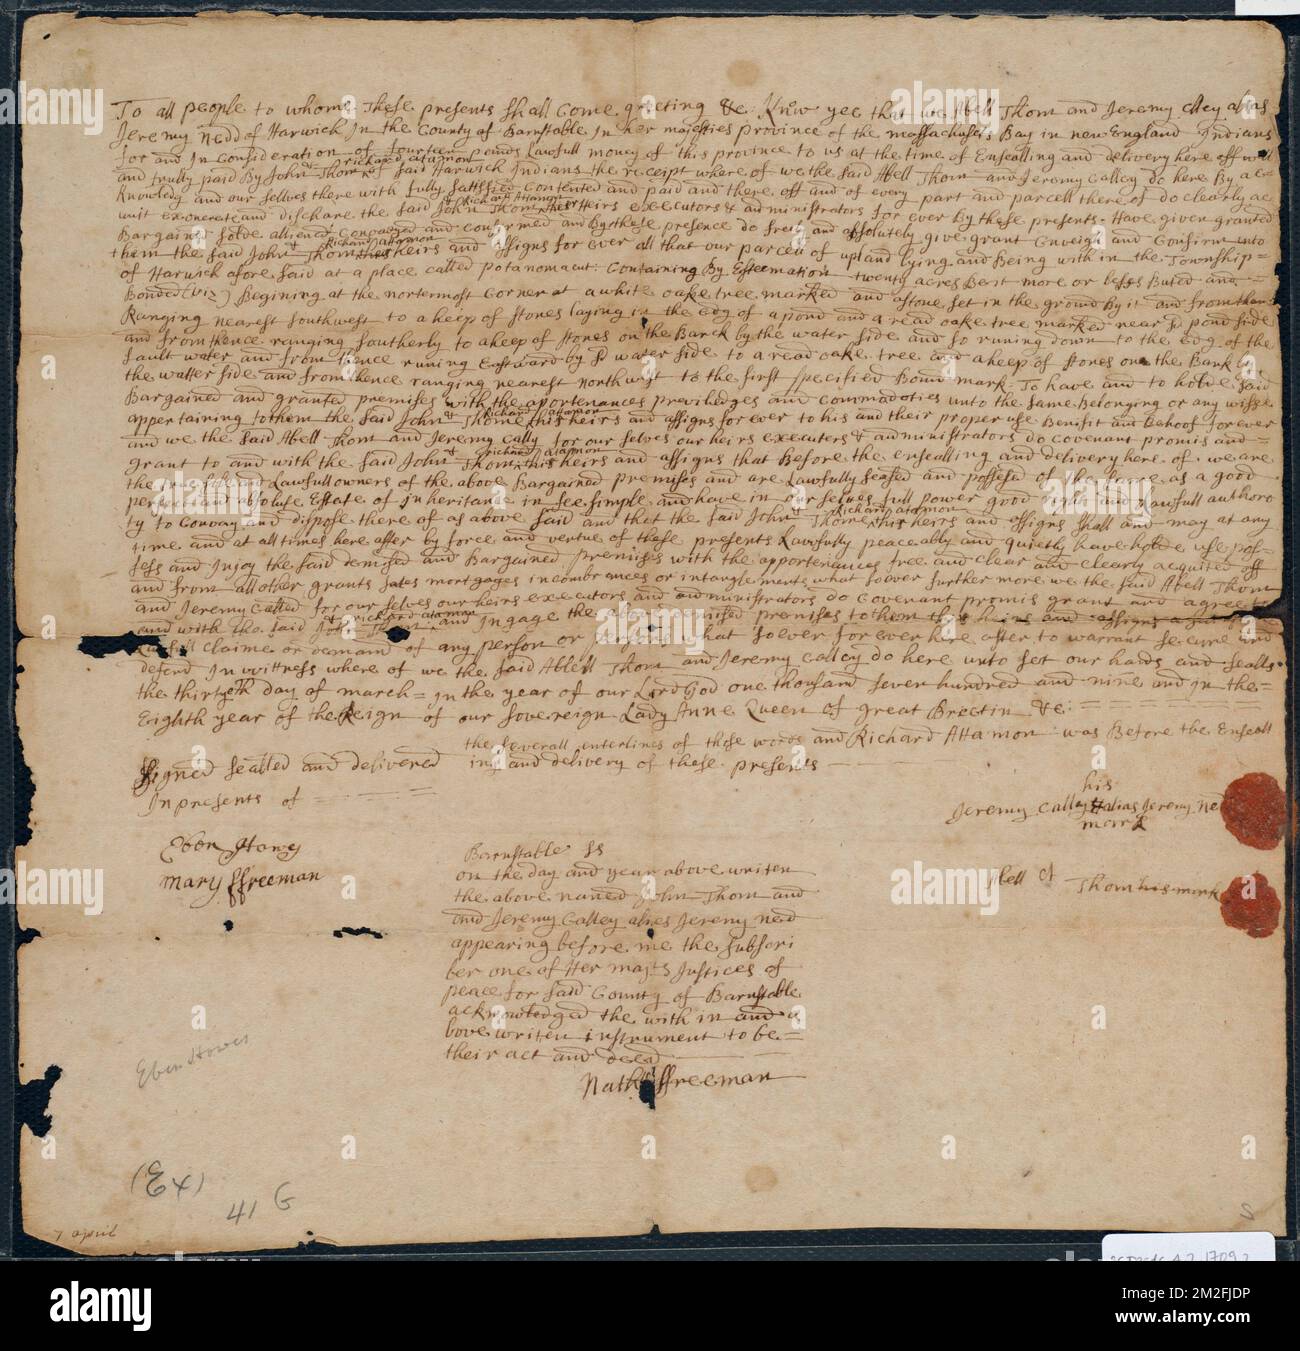 To all people to whome These presents shall Come greeting &c: Know yee that we Abell Thom and Jeremy Calley alias
Jeremy Nedd of Harwick In the County of Barnstable In her majesties province of the massachusets Bay in new England Indians
for and In Consideration of fourteen pounds Lawfull money of this province to us at the time of Ensealling and delivery here off well
& richard attamon
and trully paid By John Thom of said Harwick Indians the receipt where of we the said Abell Thom and Jeremy Calley do here By ac=
knowledg and our selves there with fully satisfied Contented and paid and there off and of every part and parcell there of do clearly ac
& Richard Attamon
quit exonerate and discharge the said John Thom heirs executors & administrators for ever By these presents. Have given granted
Bargained and confermed and By these presence do freely and absolutely give grant and Confirm unto
& Richard attamon
them the said John Thom heirs and assigns for ever all that our parcell of upland lying and Being with in the Township=
of Harwick afore said at a place called potanomacut: Containing By Esteemation twenty acres Be it more or less Buted and=
Bonded (viz) Begining at the nortermost Corner at a white oake tree marked and a stone set in the ground By it and from thence
Ranging nearest southwest to a heep of stones laying in the Edg of a pond and a read oake tree marked near sd pond side
and from thence ranging southerly to a heep of stones on the Banck by the water side and so runing down to the Edg of the
sault water and from thence runing Eastward by sd water side to a read oake tree and a heep of stones on the Bank by
the watter side and from thence ranging nearest northwest to the first specified Bound mark. To have and to holde said
Bargained and granted premises with the apportenances previledges and commodoties unto the same Belonging or any wise
& Richard attamon
appertaining to them the said John Thom heirs and assigns for ever to his and their proper use Benifit and Behoof for ever
and we the said Abell Thom and Jeremy Cally for our selves our heirs executers & administrators do Covenant promis and=
& richard attamon
grant to and with the said John Thom heirs and assigns that Before the ensealling and delivery here of we are
the true sole and Lawfull owners of the above Bargained premises and are Lawfully seased and possesed of the same as a good
perfect and absolute Estate of inheritance in fee simple and have in our selves full power good right and Lawfull authoro
& Richard attamon
ty to Convay and dispose there of as above said and that the said John Thom heirs and assigns shall and may at any
time and at all times here after by force and vertue of these presents Lawfully peaceably and quietly have holde use pos=
sess and Injoy the said demised and Bargained premises with the apportenances free and clear and clearly acquited off
and from all other grants sales mortgages incombrances or intanglements what soever further more we the said Abell Thom
and Jeremy Calley for our selves our heirs executors and administrators do Covenant promis grant and agree to
& richard attamon
and with the said and ingage the above demised premises to them heirs and assigns
Lawfull claime or demand of any person or persons what soever for ever here after to warrant secure and
defend In wittness where of we the said Abell Thom and Jeremy Calley do here unto set our hands and sealls
the thirtyeth day of march= in the year of our Lord God one thousand seven hundred and nine and in the=
Eighth year of the Reign of our sovereign Lady Anne Queen of great Breetin &c:
the severall enterlines of those words and Richard Attamon was Before the Enseall
Signed sealled and delivered ing and delivery of these presents
In presents of
his
Jeremy Calley alias Jeremy Ned
mark
Eben Hawes
Mary ffreeman
Abell Thom his mark
Barnstable ss
on the day and year above writen
the above named John Thom and
and Jeremy Calley alies Jeremy ned
appearing before me the subscri
ber one of Her majts Justices of
peace for said County of Barnstable
acknowledged the with in and a
bove writen instrument to be=
their act and deed
Nathll ffreeman
Eben Howes
(Ex)
41 G
7 april
alamy
Image ID: 2M2FJDP
www.alamy.com